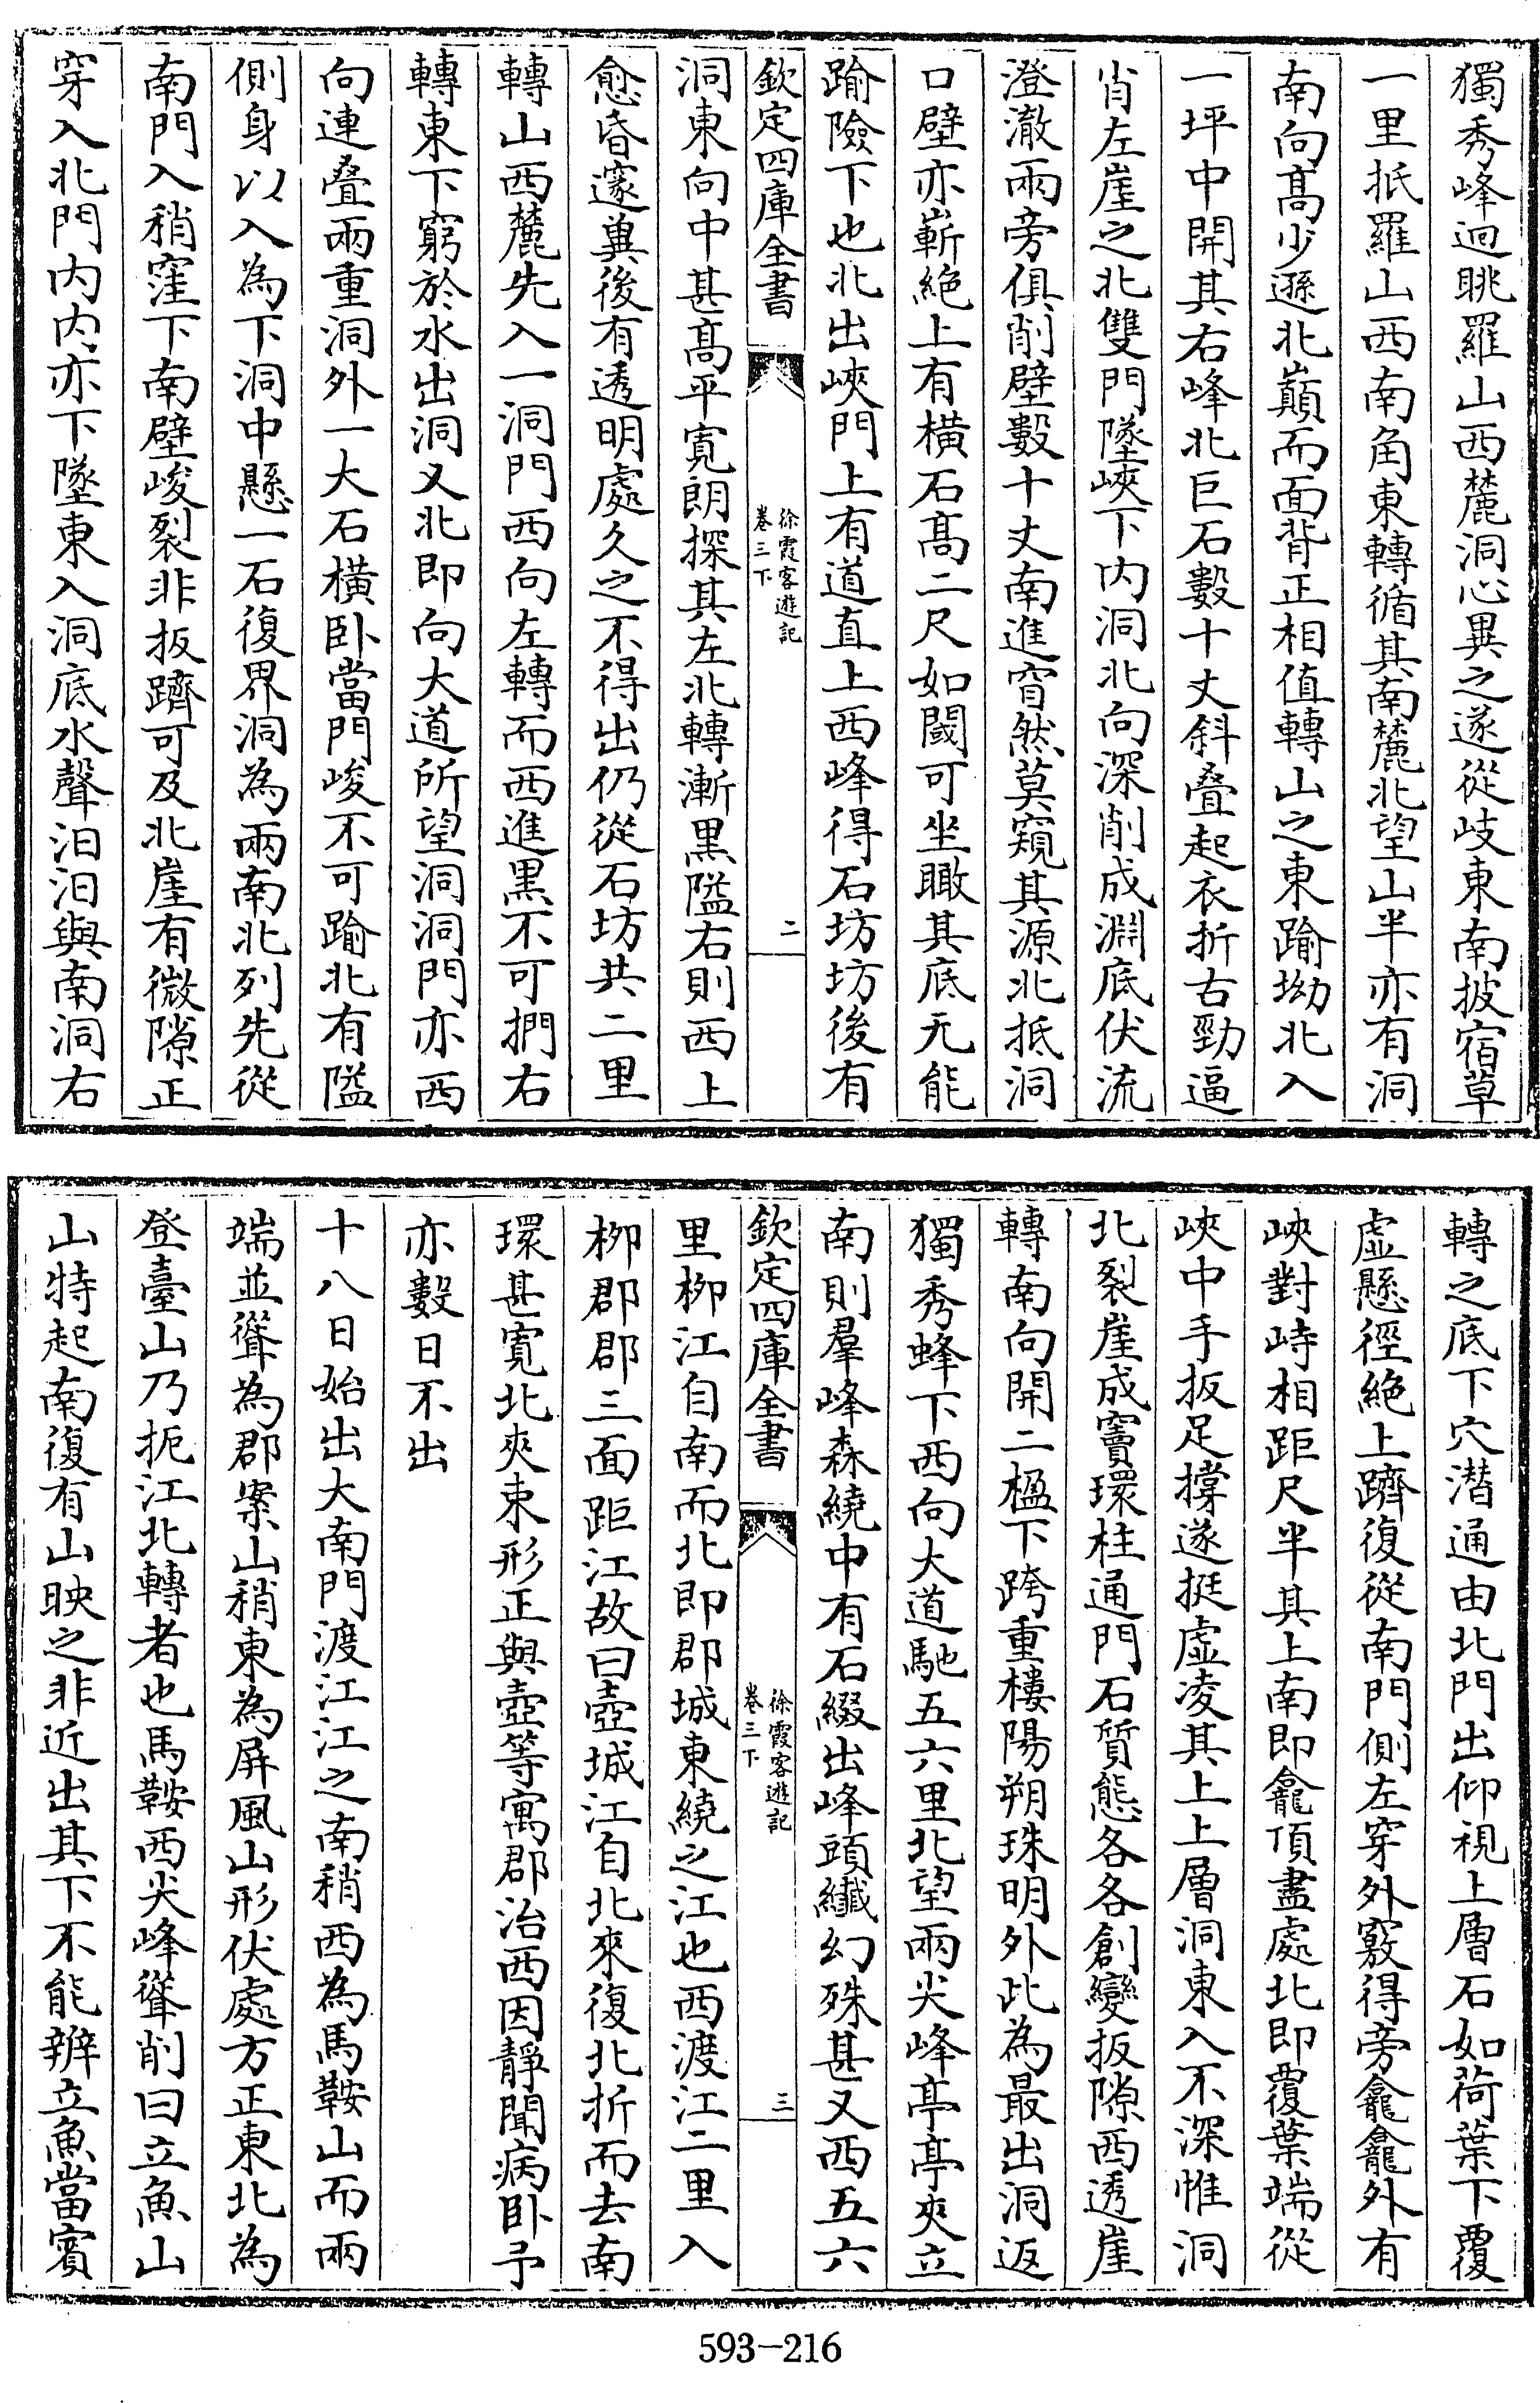 獨秀峰迴眺羅山西麓洞心異之遂從岐東南披宿草
一里抵羅山西南角東轉循其南麓北望山半亦有洞
南向髙少遜北巔而面背正相值轉山之東踰坳北入
一坪中開其右峰北巨石數十丈斜疊起衣折古勁逼
肖左崖之北雙門墜峽下内洞北向深削成淵底伏流
澄澈兩旁俱削壁數十丈南進窅然莫窺其源北抵洞
口壁亦嶄絶上有横石髙二尺如閾可坐瞰其底无能
踰險下也北出峽門上有道直上西峰得石坊坊後有
欽定四庫全書
徐霞客遊記
卷三下
二
洞東向中甚髙平寛朗探其左北轉漸黑隘右則西上
愈昏邃冀後有透明處久之不得出仍從石坊共二里
轉山西麓先入一洞門西向左轉而西進黒不可捫右
轉東下窮於水出洞又北即向大道所望洞洞門亦西
向連疊兩重洞外一大石横卧當門峻不可踰北有隘
側身以入為下洞中懸一石復界洞為兩南北列先從
南門入稍窪下南壁峻裂非扳躋可及北崖有微隙正
穿入北門内内亦下墜東入洞底水聲汨汨與南洞右
轉之底下穴潛通由北門出仰視上層石如荷葉下覆
虛懸徑絶上躋復從南門側左穿外竅得旁龕龕外有
峽對峙相距尺半其上南即龕頂盡處北即覆葉端從
峽中手扳足撐遂挺虛凌其上上層洞東入不深惟洞
北裂崖成竇環柱通門石質態各各創變扳隙西透崖
轉南向開二楹下跨重樓陽朔珠明外此為最出洞返
獨秀蜂下西向大道馳五六里北望兩尖峰亭亭夾立
南則羣峰森繞中有石綴出峰頭纖幻殊甚又西五六
欽定四庫全書
徐霞客遊記
卷三下
三
里柳江自南而北即郡城東繞之江也西渡江二里入
柳郡郡三面距江故曰壺城江自北來復北折而去南
環甚寛北夾束形正與壺等寓郡治西因靜聞病卧予
亦數日不出
十八日始出大南門渡江江之南稍西為馬鞍山而兩
端並聳為郡案山稍東為屏風山形伏處方正東北為
登臺山乃扼江北轉者也馬鞍西尖峰聳削曰立魚山
山特起南復有山映之非近出其下不能辨立魚當賓
593-216